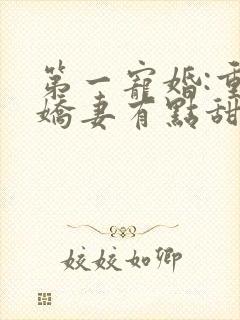 第一寵婚:重
嬌妻有點甜
姣姣如卿